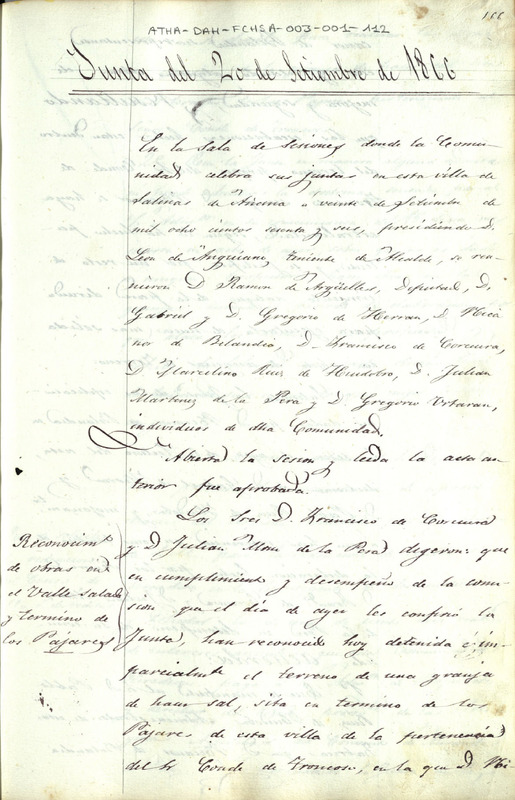 166
ATHA-DAH-FCHSA-003-001-112
Junta del 20 de Setiembre de 1866
En la Sala de Sesiones donde la Comu-
nidad celebra sus juntas en esta villa de
Salinas de Añana a veinte de Setiembre de
mil ocho cientos sesenta y seis, presidiendo D.
Leon de Anguiano, teniente de Alcalde, se reu-
nieron D Ramon de Argüelles, Deputado, D.
Gabriel y D. Gregorio de Herran, D Nica
nor de Belandia, D. Francisco de Corcuera,
D Marcelino Ruiz de Huidobro, D. Julian
Martinez de la Pera y D Gregorio Urtaran,
individuos de dha Comunidad.
Abierta la sesion y leida la acta an-
terior fue aprobada.
Los Sres D. Francisco de Corcuera
y D Julian Mrnz de la Pera digeron: que
en cumplimiento y desempeño de la comi-
sion que el dia de ayer les confirió la
Junta, han reconocido hoy detenida é im-
parcialmte el terreno de una granja
de hacer sal, sita en termino de los
Pajares de esta villa de la pertenencia
del Sr Conde de Troncoso, en la que D Ni-
Reconocimto
de obras en
el Valle salado
y termino de
los Pajares